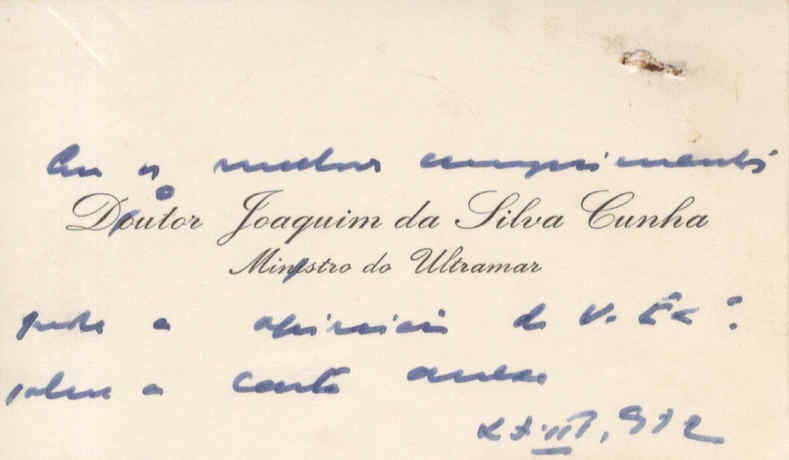 Com os melhores cumprimentos
Doutor Joaquim da Silva Cunha
Ministro do Ultramar
pede a opinião de V. Exª.
sobre a carta anexa
27.III.972